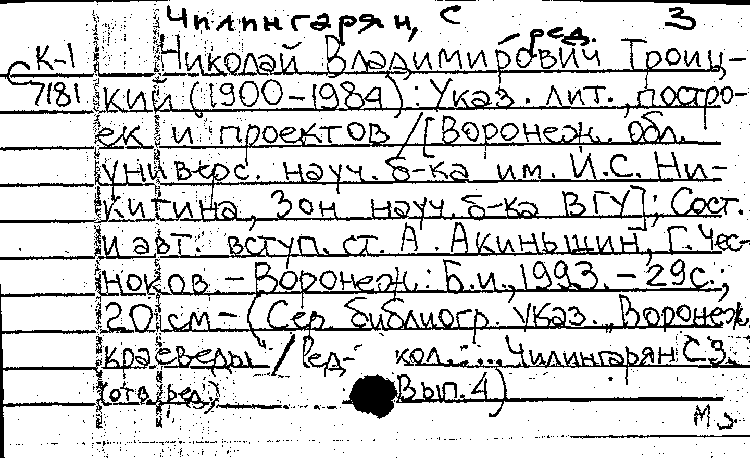 Чилингарян, С З
ред.
К-1 Николай Владимирович Троиц-
С 7181 кий (1900-1984): Указ. лит., постро-
ек и проектов /[Воронеж. обл.
универс. науч. б-ка им. И.С. Ни-
китина, Зон науч. б-ка ВГУ]; Сост.
и авт. вступ. ст. А. Акиньшин, Г. Чес-
ноков. - Воронеж: Б.и., 1993. - 29с.;
20 см - (Сер. библиогр. указ. „Воронеж.
краеведы" / Ред-кол.: ... Чилингарян С.З.
(отв. ред.) Вып. 4)